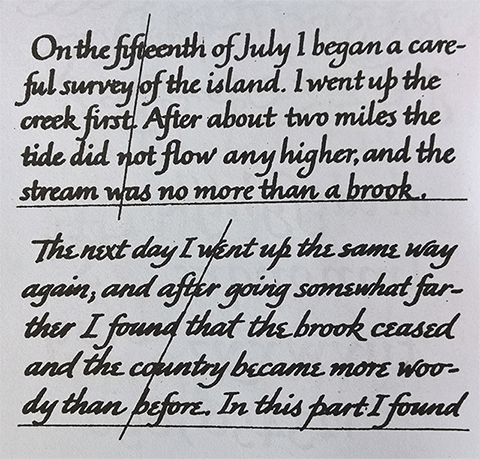 On the fifteenth of July I began a care-
ful survey of the island. I went up the
creek first. After about two miles the
tide did not flow any higher, and the
stream was no more than a brook.
The next day I went up the same way
again; and after going somewhat far-
ther I found that the brook ceased
and the country became more woo-
dy than before. In this part I found